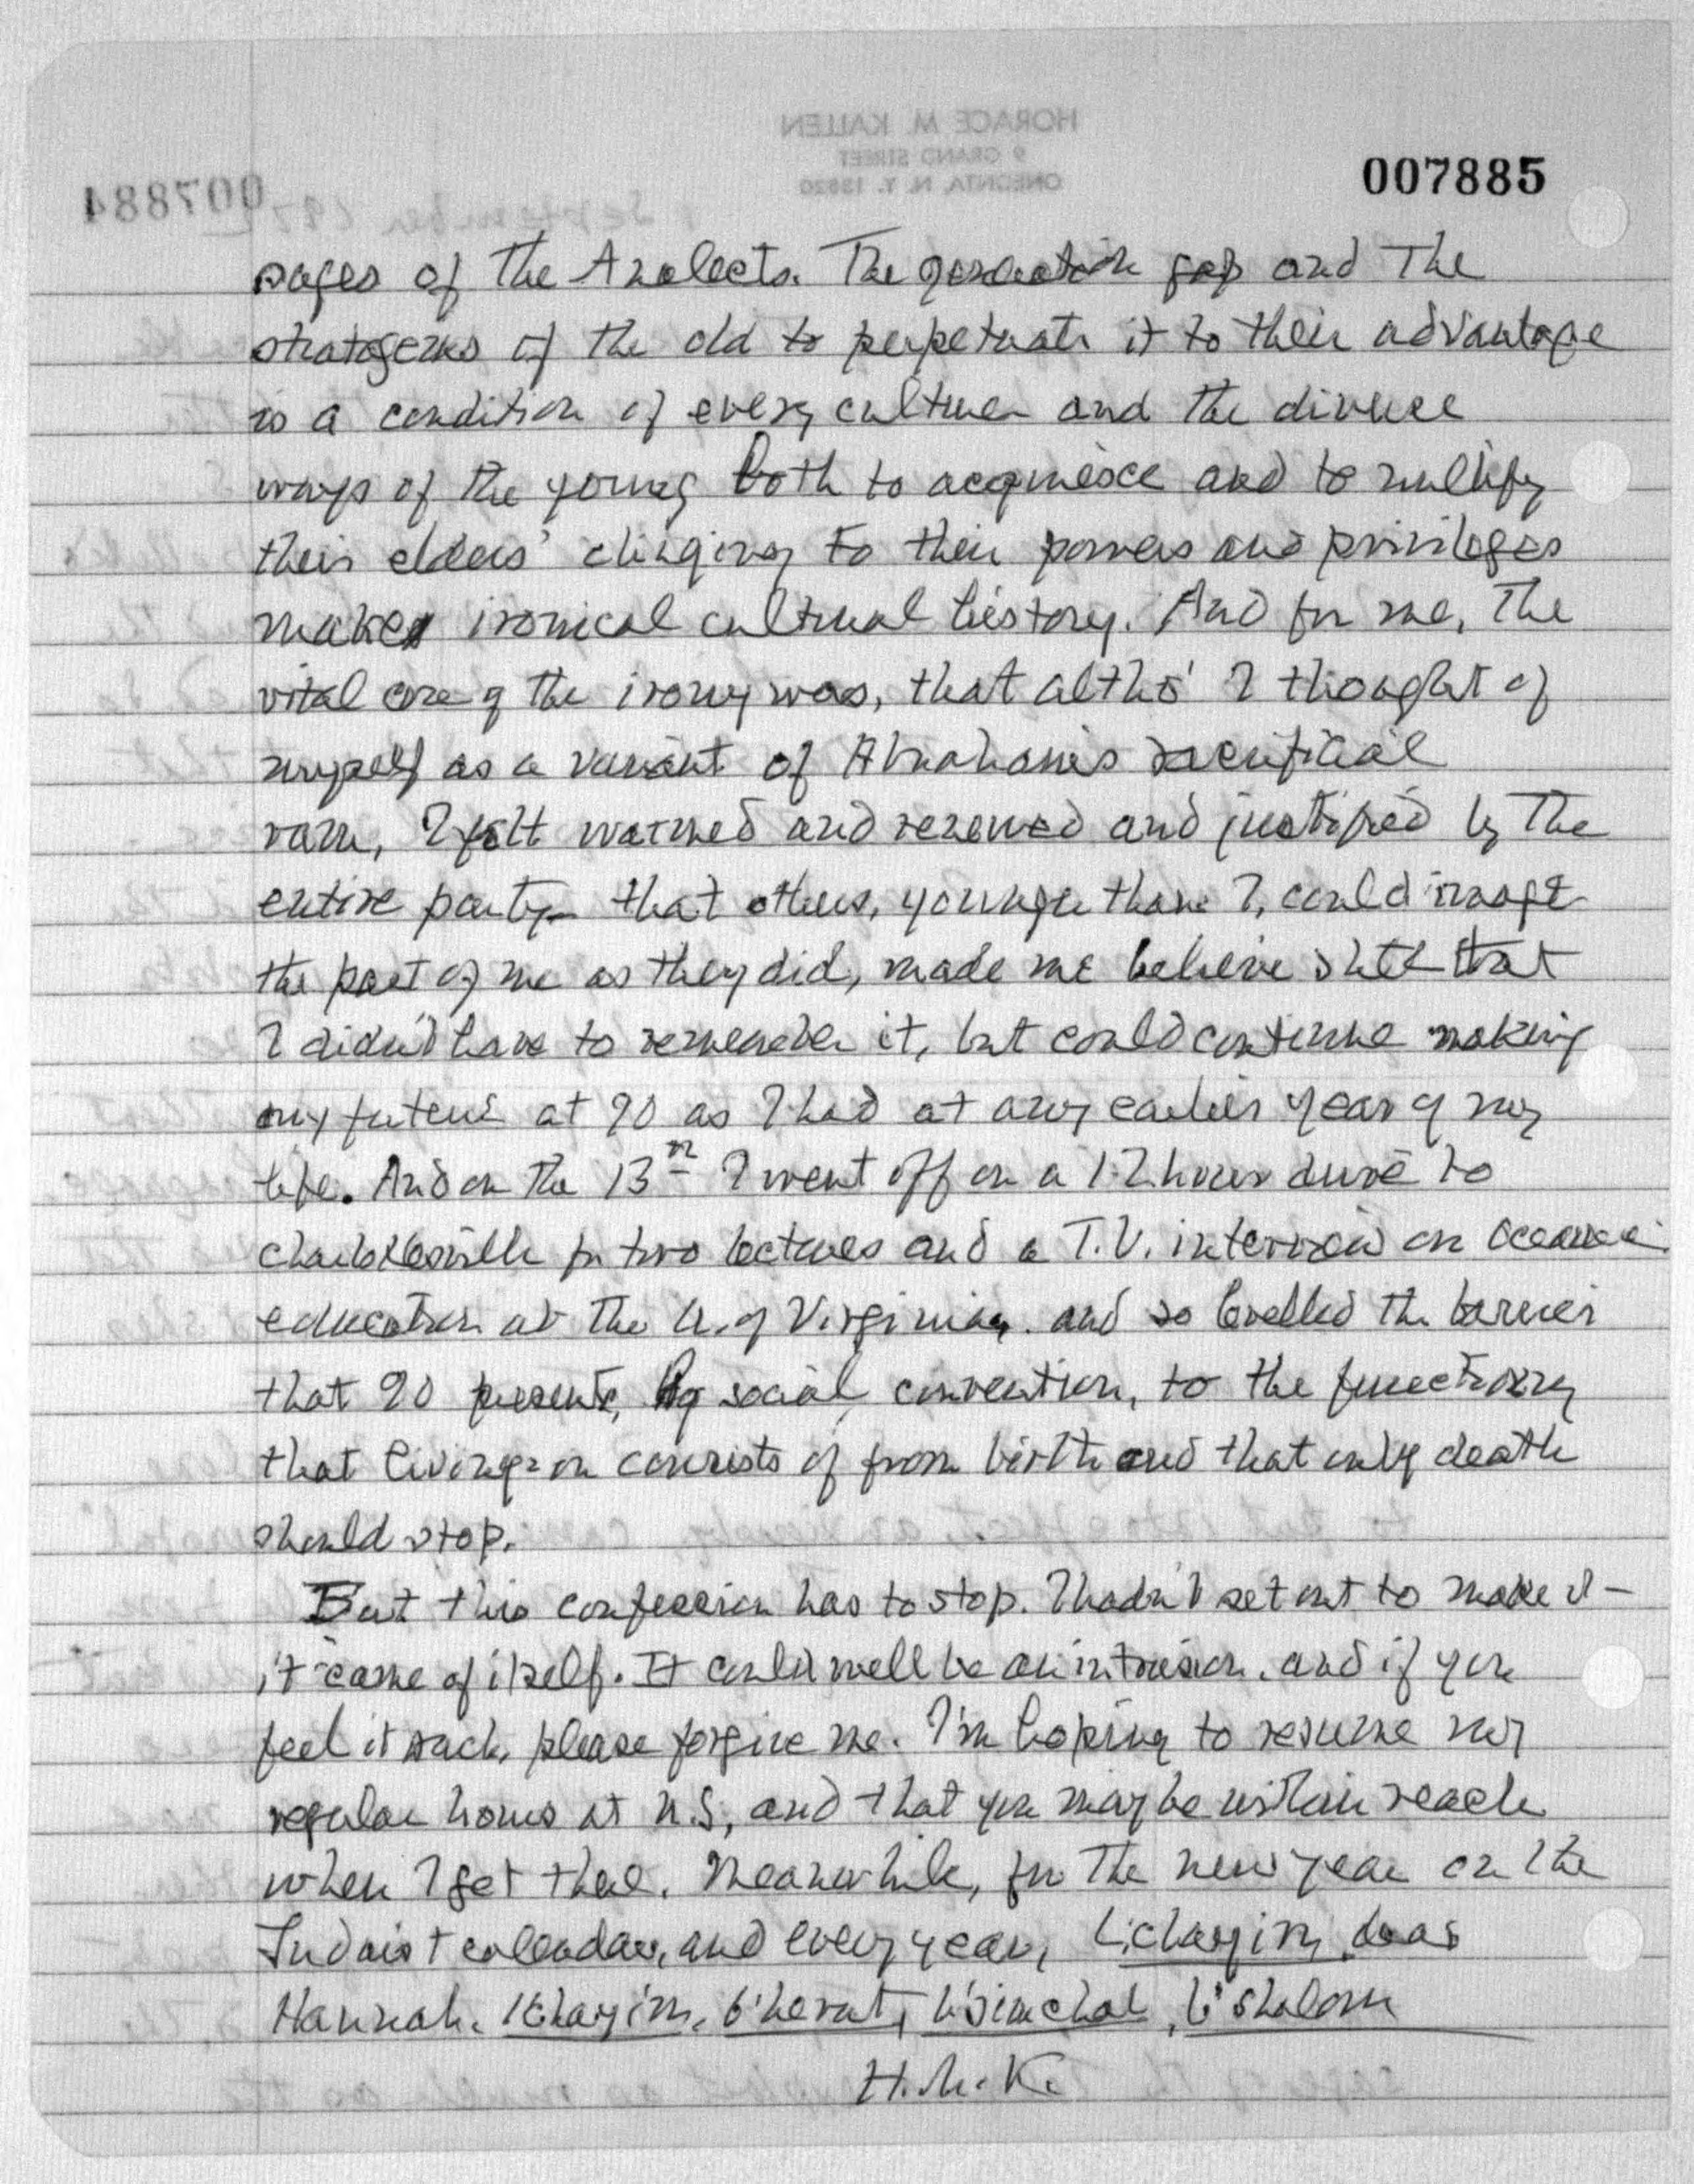 007885
pages of the Analects. The generation gap and the
stratagems of the old to perpetuate it to their advantage
is a condition of every culture and the diverse
ways of the young both to acquiesce and to nullify
their elders' clinging to their powers and privileges
makes ironical cultural history. And for me, the
vital core of the irony was, that altho' I thought of
myself as a variant of Abraham's sacrificial
ram, I felt warmed and renewed and justified by the
entire party – that others, younger than I, could image
the past of me as they did, made me believe that
I didn't have to remember it, but could continue making
my future at 90 as I had at any earlier year of my
life. And on the 13th I went off on a 12 hour drive to
Charlottesville for two lectures and a T.V. interview on
education at the U. of Virginia, and so levelled the barrier
that 90 presents, by social convention, to the functioning
that living on consists of from birth and that only death
should stop.
But this confession has to stop. I hadn't set out to make it –
it came of itself. It could well be an intrusion, and if you
feel it such, please forgive me. I'm hoping to resume my
regular hours at N.S., and that you may be within reach
when I get there. Meanwhile, for the new year on the
Judaist calendar, and every year, L'chayim, dear
Hannah. l'chayim, l'simchah, l'shalom
H. M. K.
HORACE M. KALLEN
9 GRAND STREET
ONEONTA, N. Y. 13820
007884